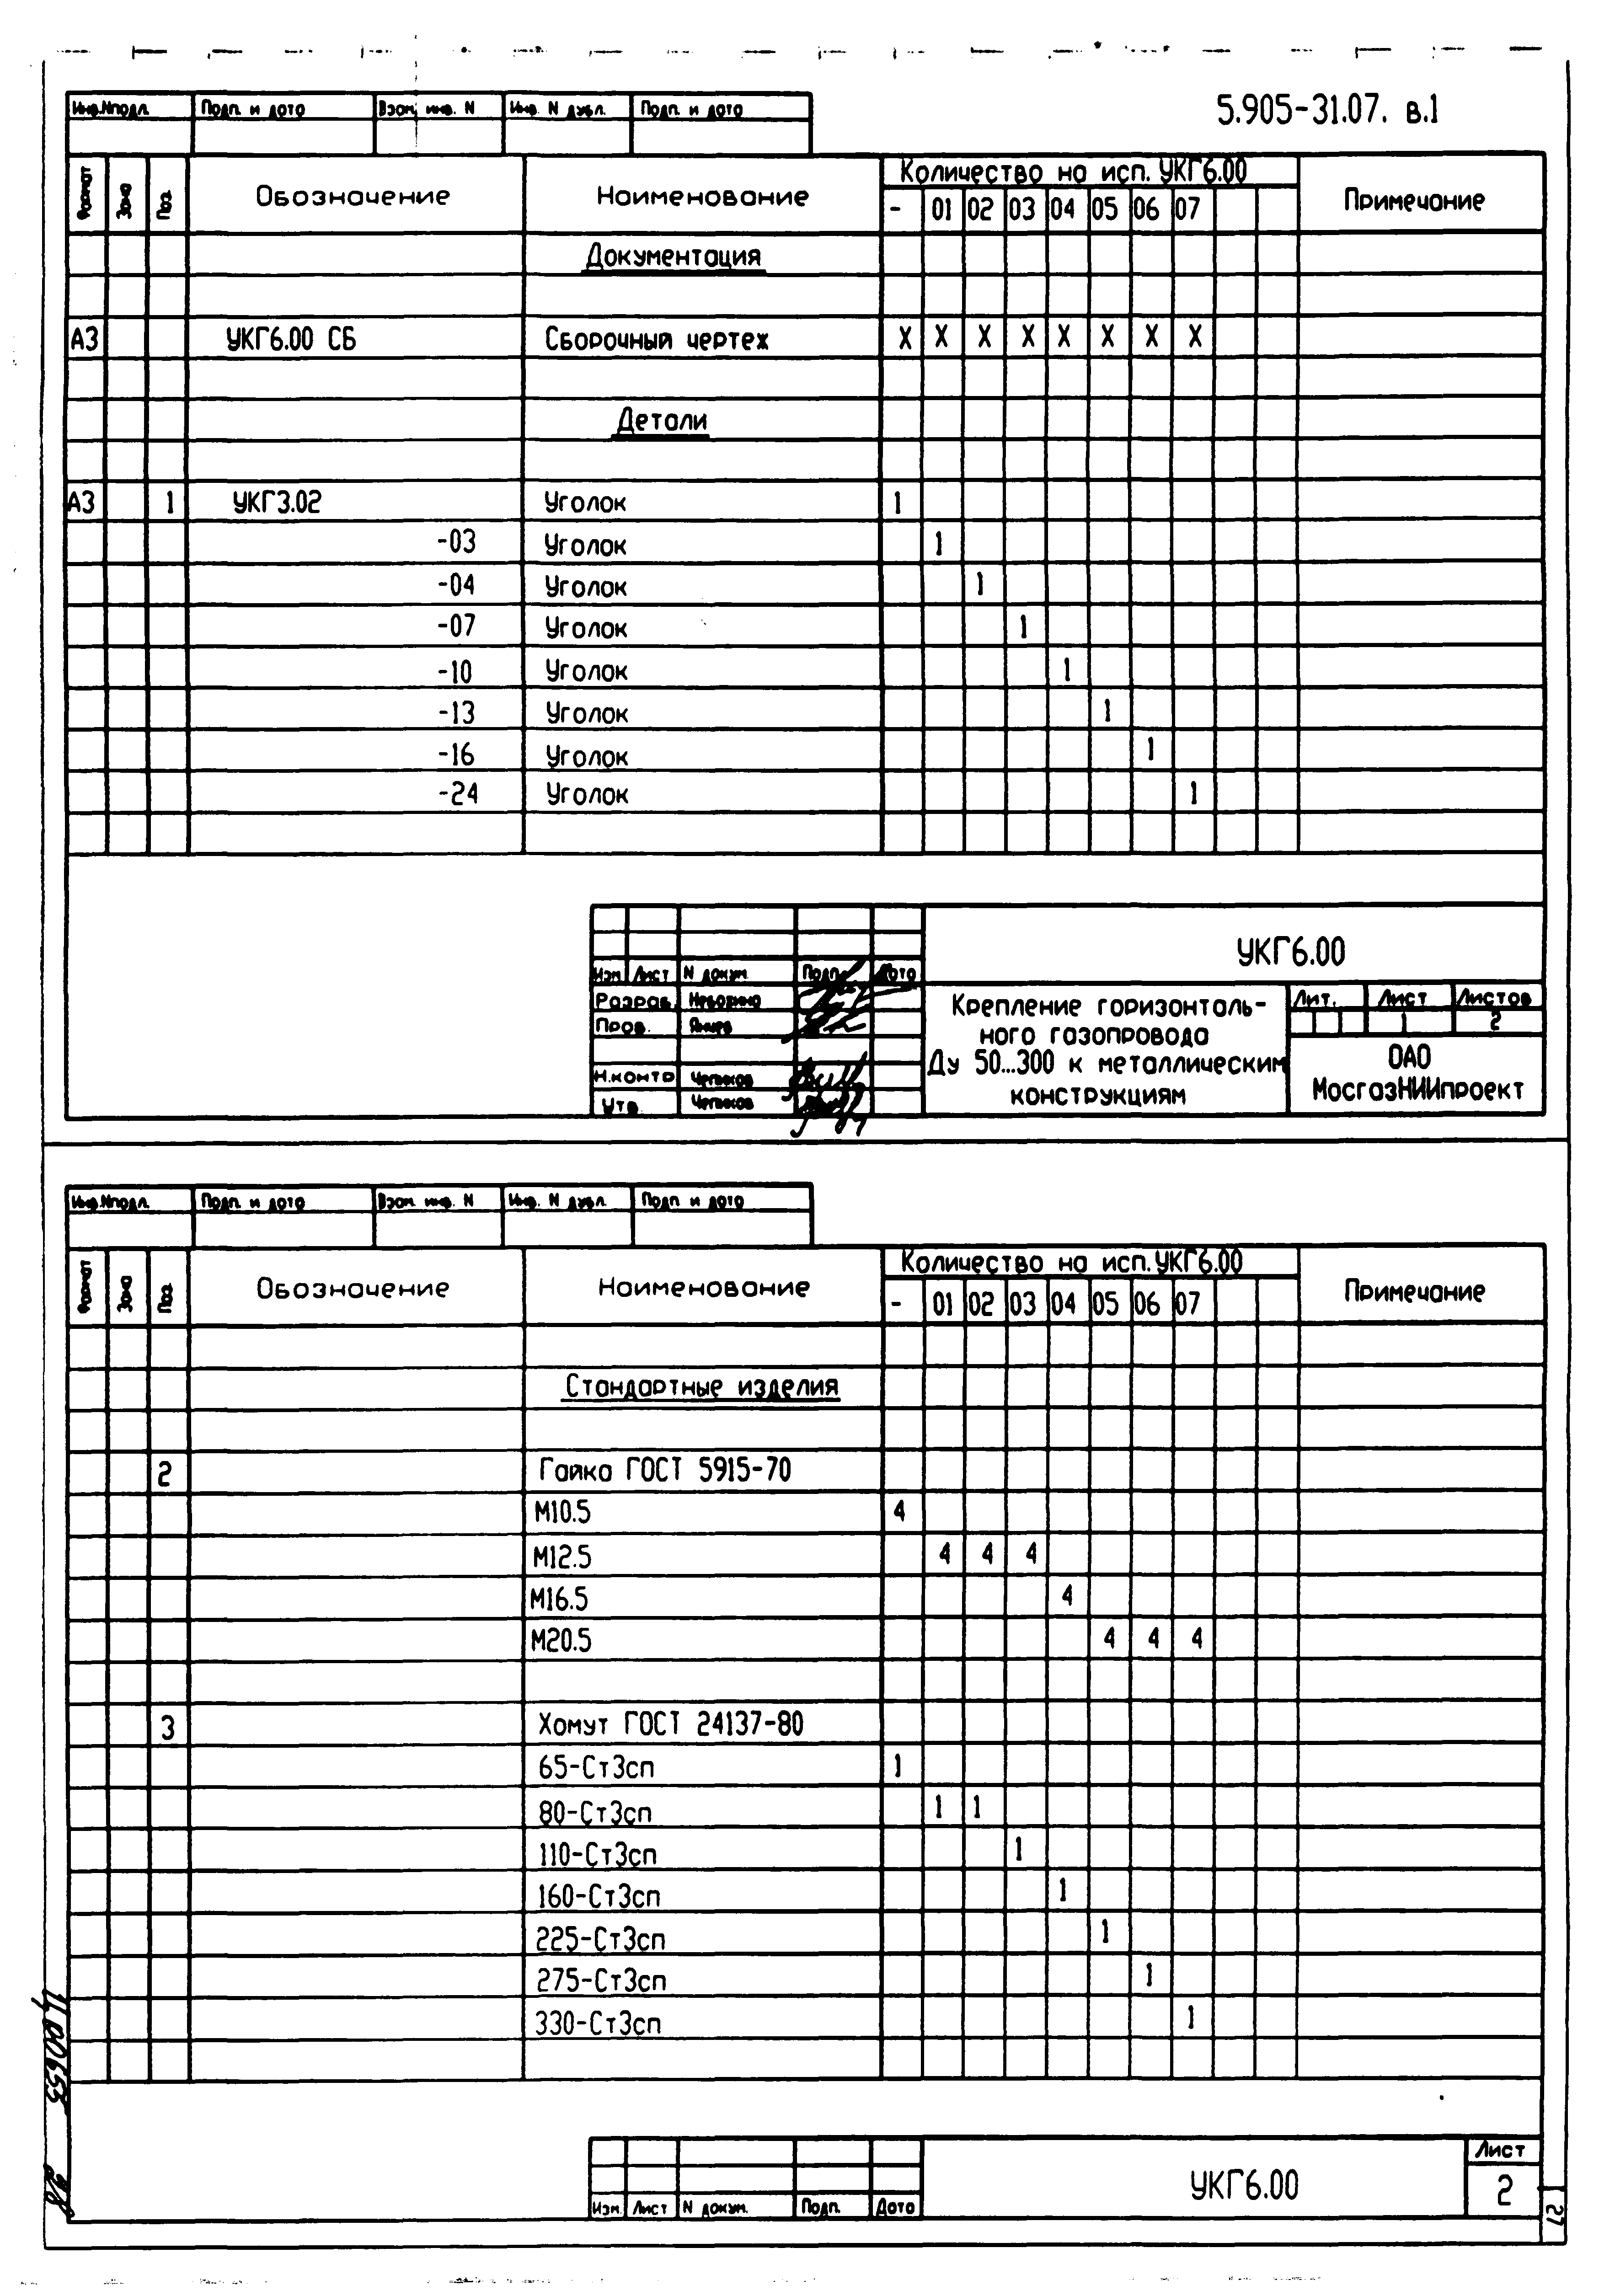 5.905-31.07. в.1
Инв.Nподл. Подп. и дата Взам. инв. N Инв. N дубл. Подп. и дата
Формат Зона Поз. Обозначение Наименование Количество на исп. УКГ6.00 Примечание
- 01 02 03 04 05 06 07
Документация
А3 УКГ6.00 СБ Сборочный чертеж X X X X X X X X
Детали
А3 1 УКГ3.02 Уголок 1
-03 Уголок 1
-04 Уголок 1
-07 Уголок 1
-10 Уголок 1
-13 Уголок 1
-16 Уголок 1
-24 Уголок 1
УКГ6.00
Изм. Лист N докум. Подп. Дата
Разраб.
Пров.
Н.контр
Утв.
Крепление горизонталь-
ного газопровода
Ду 50...300 к металлическим
конструкциям
Лит. Лист Листов
1 2
ОАО
МосгазНИИпроект
Инв.Nподл. Подп. и дата Взам. инв. N Инв. N дубл. Подп. и дата
Формат Зона Поз. Обозначение Наименование Количество на исп. УКГ6.00 Примечание
- 01 02 03 04 05 06 07
Стандартные изделия
2 Гайка ГОСТ 5915-70
М10.5 4
М12.5 4 4 4
М16.5 4
М20.5 4 4 4
3 Хомут ГОСТ 24137-80
65-Ст3сп 1
80-Ст3сп 1 1
110-Ст3сп 1
160-Ст3сп 1
225-Ст3сп 1
275-Ст3сп 1
330-Ст3сп 1
Изм. Лист N докум. Подп. Дата
УКГ6.00
Лист
2
27
Ц00653
28